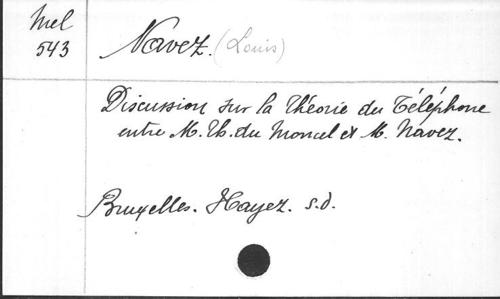 Mel
543
Navez. (Louis)
Discussion sur la Théorie du Téléphone
entre M. Th. du Moncel et M. Navez.
Bruxelles. Hayez. s.d.